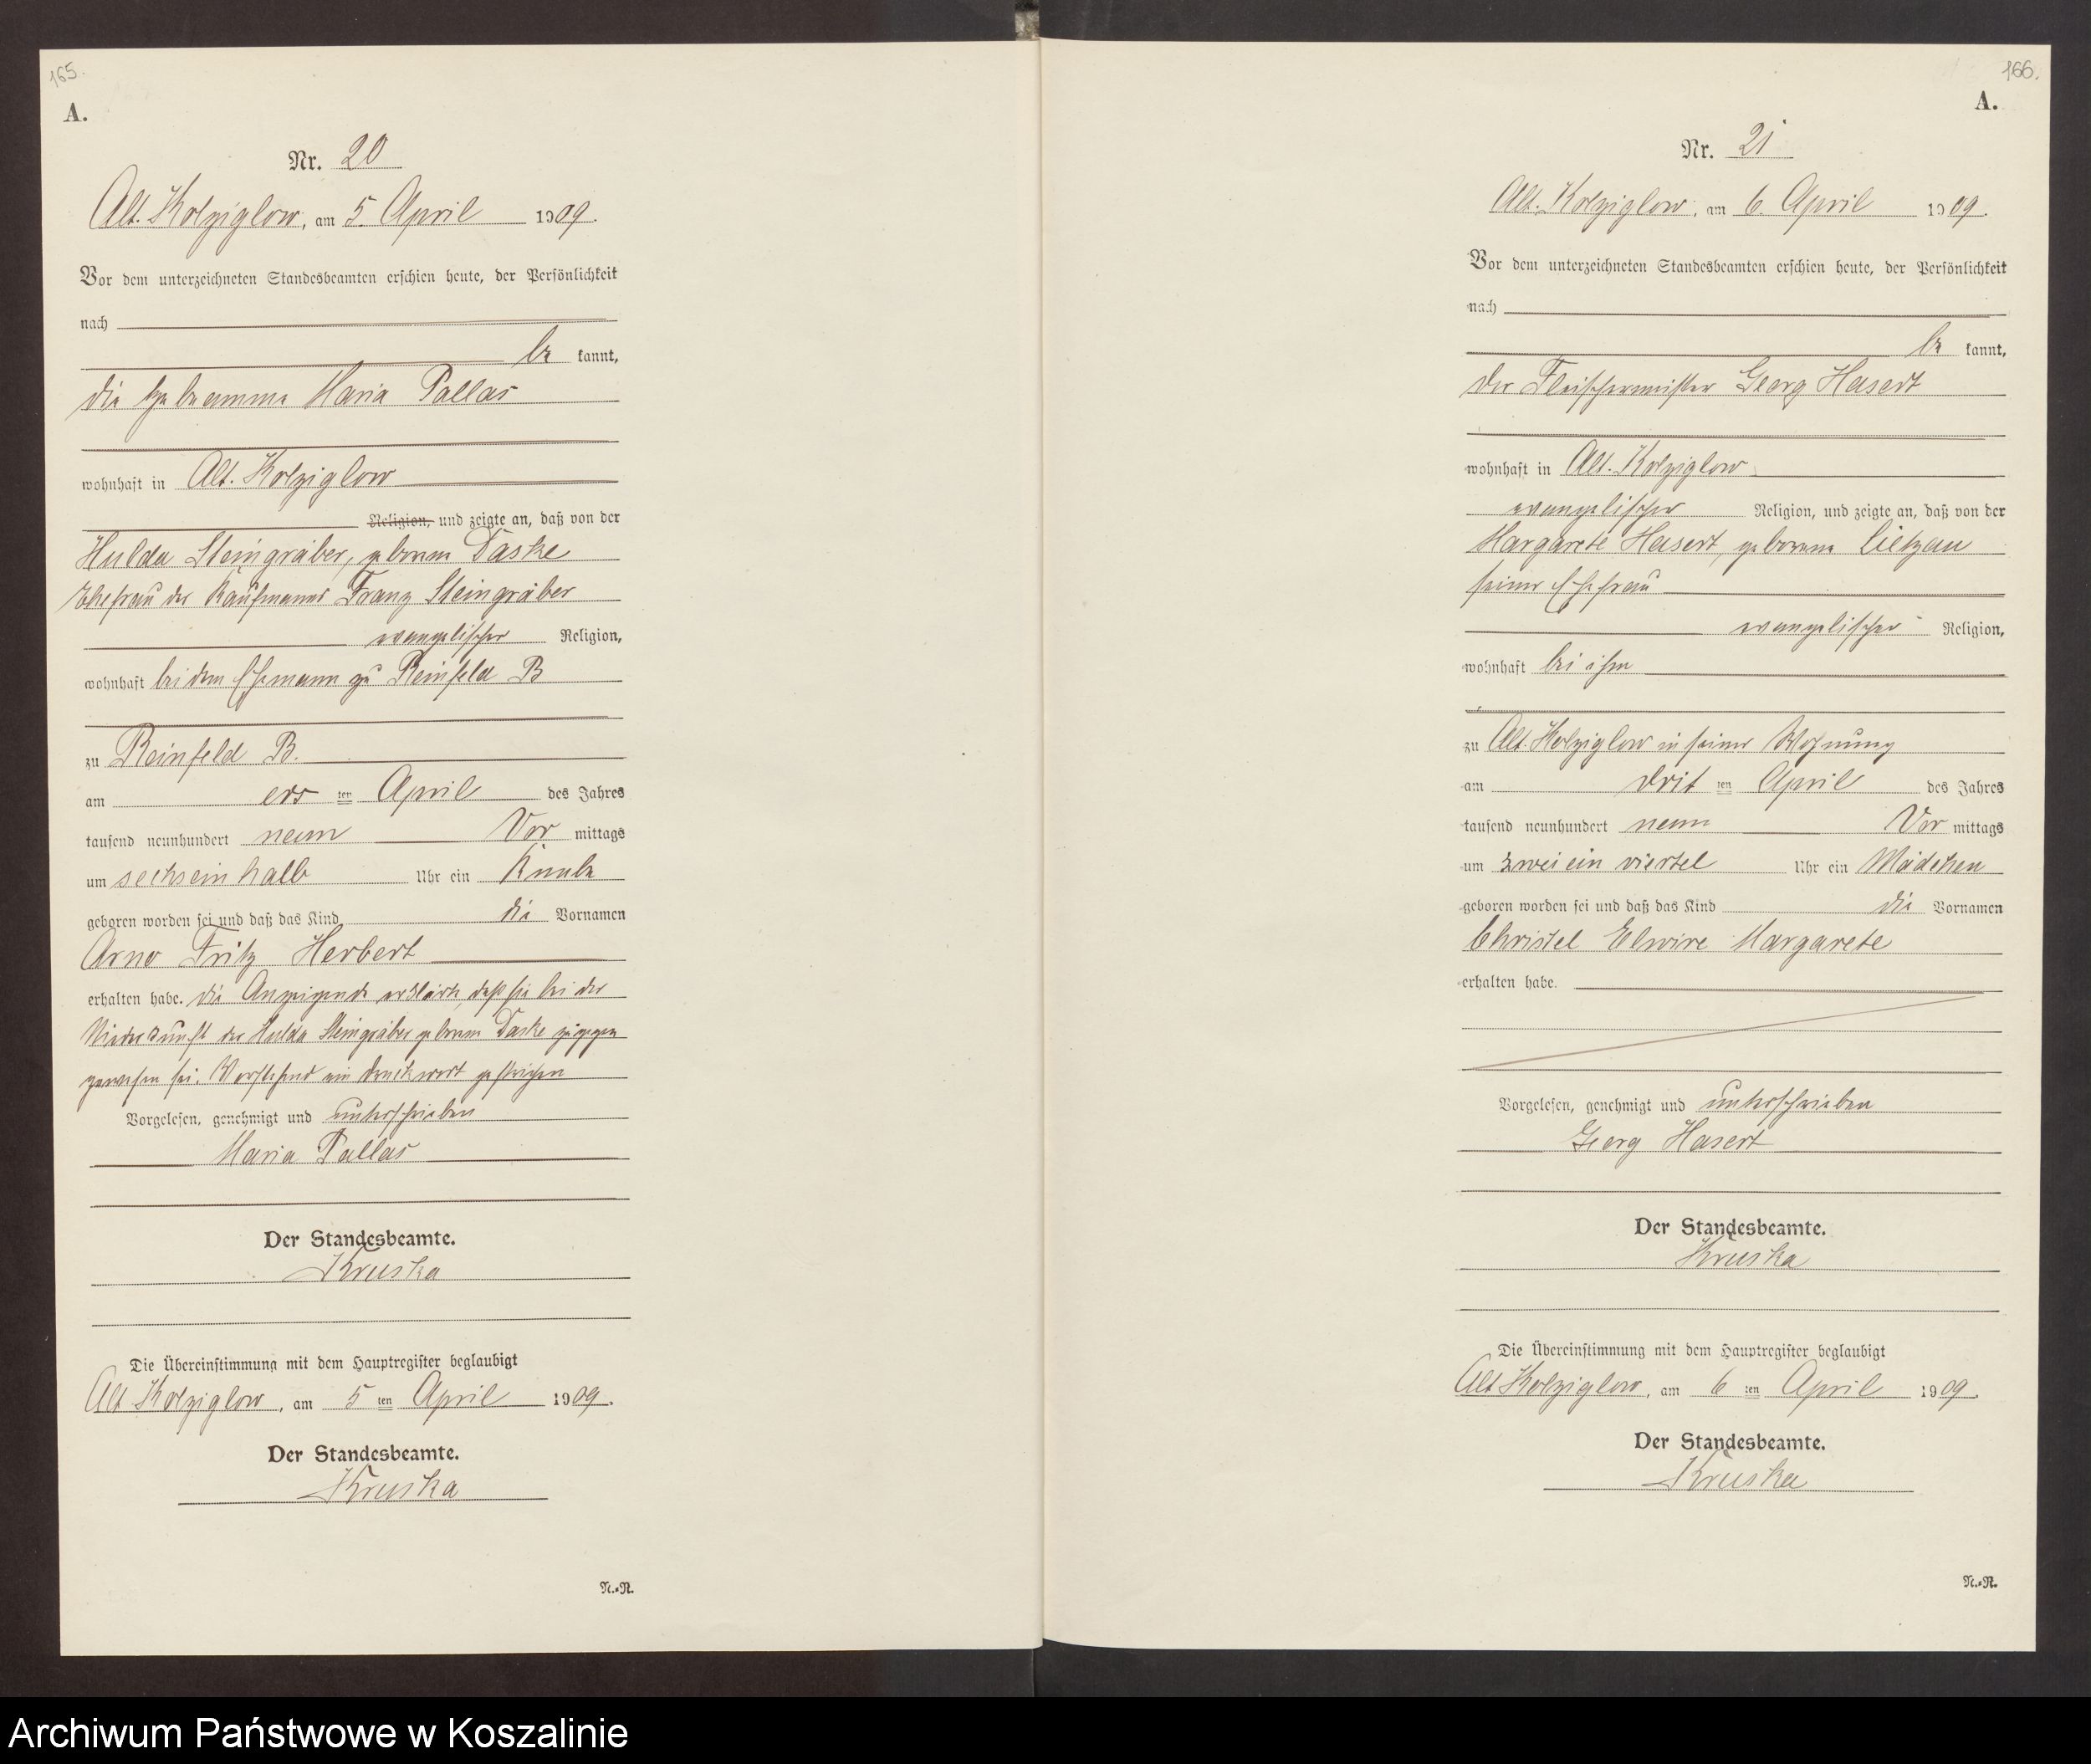 165.
A.
Nr. 20
Alt. Kolziglow, am 5. April 1909.
Vor dem unterzeichneten Standesbeamten erschien heute, der Persönlichkeit
nach
be kannt,
die Hebeamme Maria Pallas
wohnhaft in Alt. Kolziglow
Religion, und zeigte an, daß von der
Hulda Steingräber, geborene Taske
Ehefrau des Kaufmanns Franz Steingräber
evangelischer Religion,
wohnhaft bei dem Ehemann zu Reinfeld B
zu Reinfeld B.
am ers ten April des Jahres
tausend neunhundert neun Vor mittags
um sechseinhalb Uhr ein Knabe
geboren worden sei und daß das Kind die Vornamen
Arno Fritz Herbert
erhalten habe. Die Anzeigende erklärte, daß sie bei der
Niederkunft der Hulda Steingräber geborene Taske zugegen
gewesen sei. Vorstehend ein Druckwort gestrichen
Vorgelesen, genehmigt und unterschrieben
Maria Pallas
Der Standesbeamte.
Kruska
Die Übereinstimmung mit dem Hauptregister beglaubigt
Alt Kolziglow, am 5 ten April 1909.
Der Standesbeamte.
Kruska
N.=R.
166.
A.
Nr. 21
Alt. Kolziglow, am 6. April 1909.
Vor dem unterzeichneten Standesbeamten erschien heute, der Persönlichkeit
nach
be kannt,
der Fleischermeister Georg Hasert
wohnhaft in Alt. Kolziglow
evangelischer Religion, und zeigte an, daß von der
Margarete Hasert, geborene Lietzau
seiner Ehefrau
evangelischer Religion,
wohnhaft bei ihm
zu Alt. Kolziglow in seiner Wohnung
am drit ten April des Jahres
tausend neunhundert neun Vor mittags
um zwei ein viertel Uhr ein Mädchen
geboren worden sei und daß das Kind die Vornamen
Christel Elwire Margarete
erhalten habe.
Vorgelesen, genehmigt und unterschrieben
Georg Hasert
Der Standesbeamte.
Kruska
Die Übereinstimmung mit dem Hauptregister beglaubigt
Alt Kolziglow, am 6 ten April 1909.
Der Standesbeamte.
Kruska
N.=R.
Archiwum Państwowe w Koszalinie